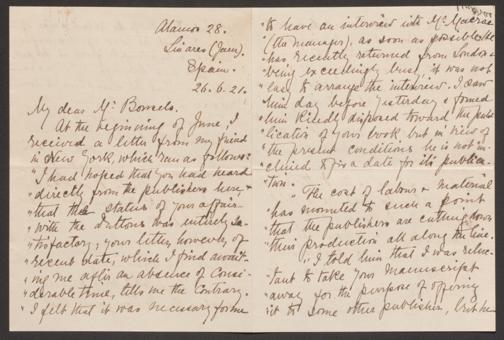 Alamos 28.
Linares (Jaen).
Spain.
26.6.21.
My dear Mr
At the beginning of June I
received a letter from my friend
in New York, which ran as follows:
"I had hoped that you had heard
"directly from the publishers here
"that the status of your affair
"with the Duttons was entirely sa-
"tisfactory; your letter, however, of
"recent date, which I find await-
"ing me after an absence of consi-
"derable time, tells me the contrary.
"I felt that it was necessary for me
"to have an interview with Mr Macrae
"(the manager), as soon as possible. He
"has recently returned from London &
"being exceedingly busy, it was not
"easy to arrange the interview. I saw
"him day before yesterday & found
"him kindly disposed toward the pub-
"lication of your book, but in view of
"the present conditions he is not in-
"clined to fix a date for its publica-
"tion.
"The cost of labour & material
"has mounted to such a point
"that the publishers are cutting down
"their production all along the line.
"I told him that I was reluc-
"tant to take your manuscript
"away for the purpose of offering
"it to some other publisher, but he